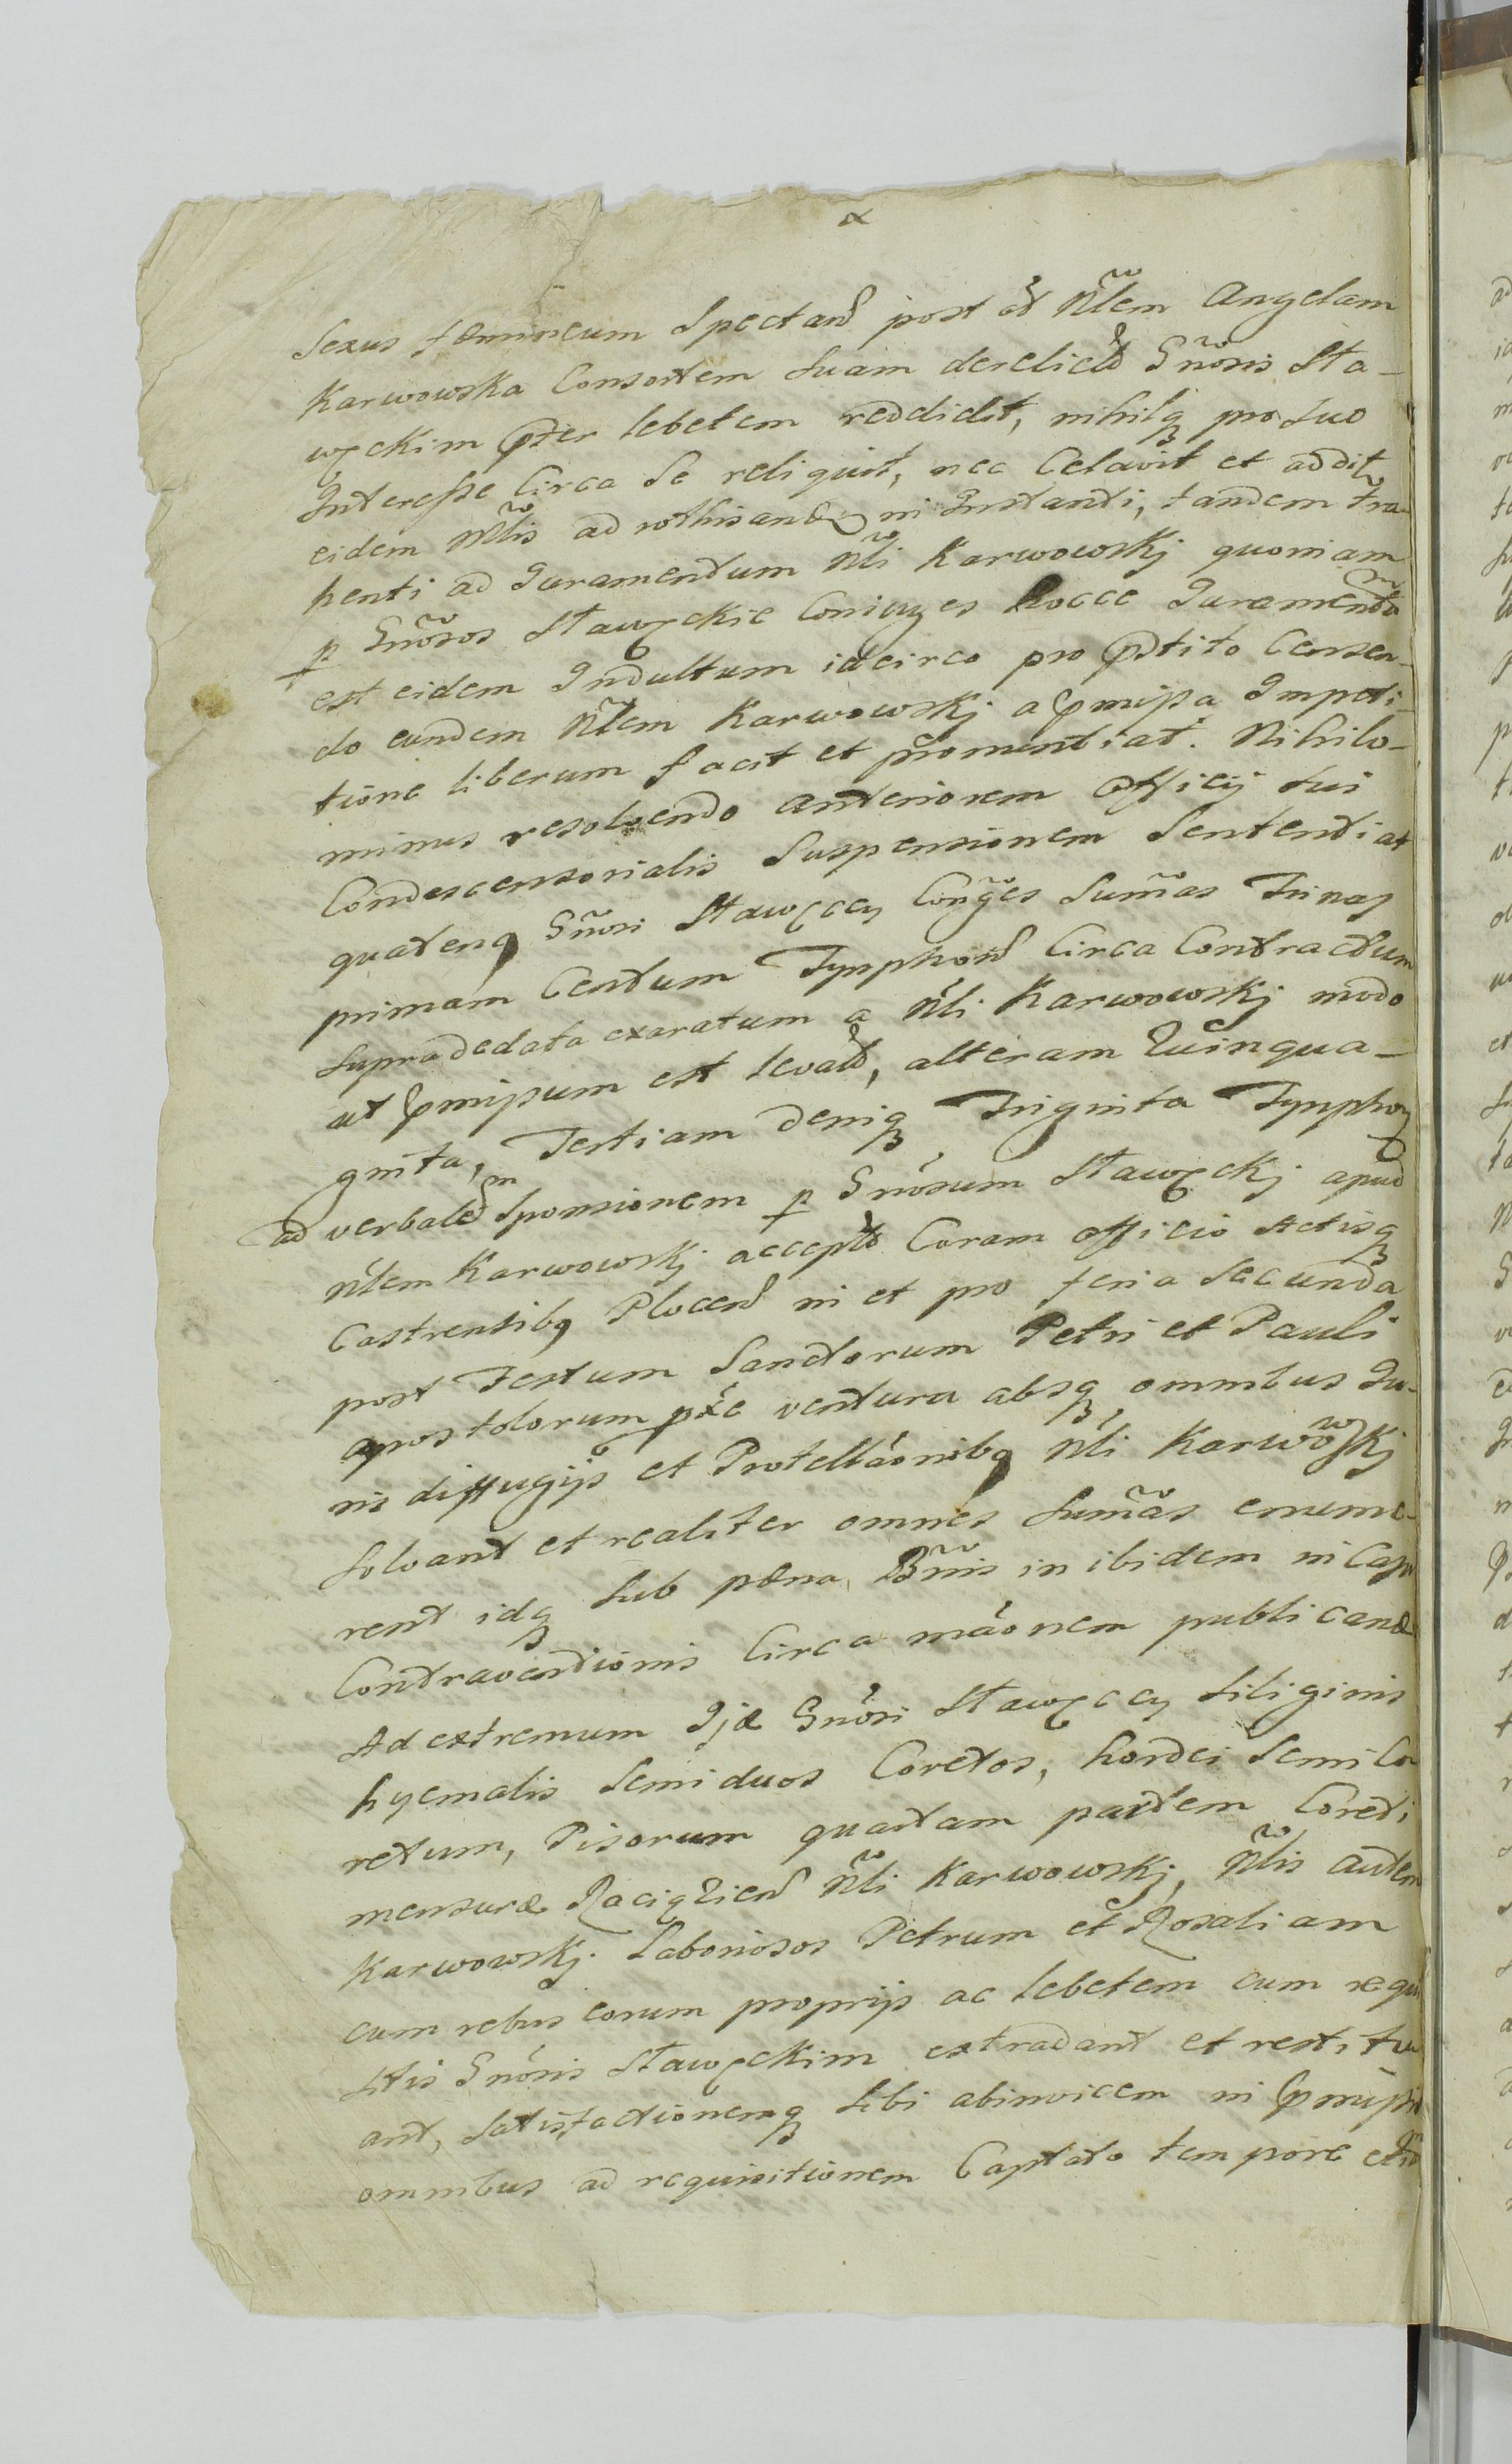 Sexus fœmineum Spectand post et Nlem Angelam
Karwowska Consortem Suam derelicta Gnosis Sta-
węckim pter lebetem reddidit, nihilq pro suo
Interesse Circa Se reliquit, nec Celavit et addit
eidem Nlis ad rothisand in Instanti, tandem tra
henti ad Juramentum Nli Karwowskj quoniam
p Gnosos Stawęckie Coniuges hocce Juramento
est eidem Indultum idcirco pro pstito Censen-
do eundem Nlem Karwowskj a pmissa Impeti-
tione liberum facit et pronuntiat. Nihilo-
minus resolvendo anteriorem Officij sui
Condescensorialis Suspensionem Sententiat
quatenq Gnosi Stawęccy Conges Sumas Trinas
primam Centum Tynphon Circa Contractum
supra de data exaratum a Nli Karwowskj modo
ut pmissum est levatd, alteram Quinqua-
ginta, Tertiam deniq Triginta Tynphon
ad verbale Sponsionem p Gnosum Stawęckj apud
Nlem Karwowskj accepta Coram officio Actisq
Castrensibq Plocen in et pro feria Secunda
post Festum Sanctorum Petri et Pauli
Apostolorum pxe ventura absq omnibus Ju-
ris diffugijs et Protellaonibq Nli Karwowskj
Solvant et realiter omnes Sumas enume-
rent idq Sub pœna Bnnis in ibidem in Casu
Contraventionis Circa maonem publicand
Ad extremum Ijd Gnosi Stawęccy Siliginis
hyemalis Semiduos Coretos, hordei Semi Co
retum, Pisorum quartam partem Coreti
mensuræ Raciązien Nli Karwowskj, Nlis autem
Karwowskj Laboriosos Petrum et Rosaliam
cum rebus eorum proprijs ac lebetem cum requi
sitis Gnosis Stawęckim extradant et restitu
ant, Satisfactionemq Sibi abinvicem in pmissis
omnibus ad requisitionem Captato tempore